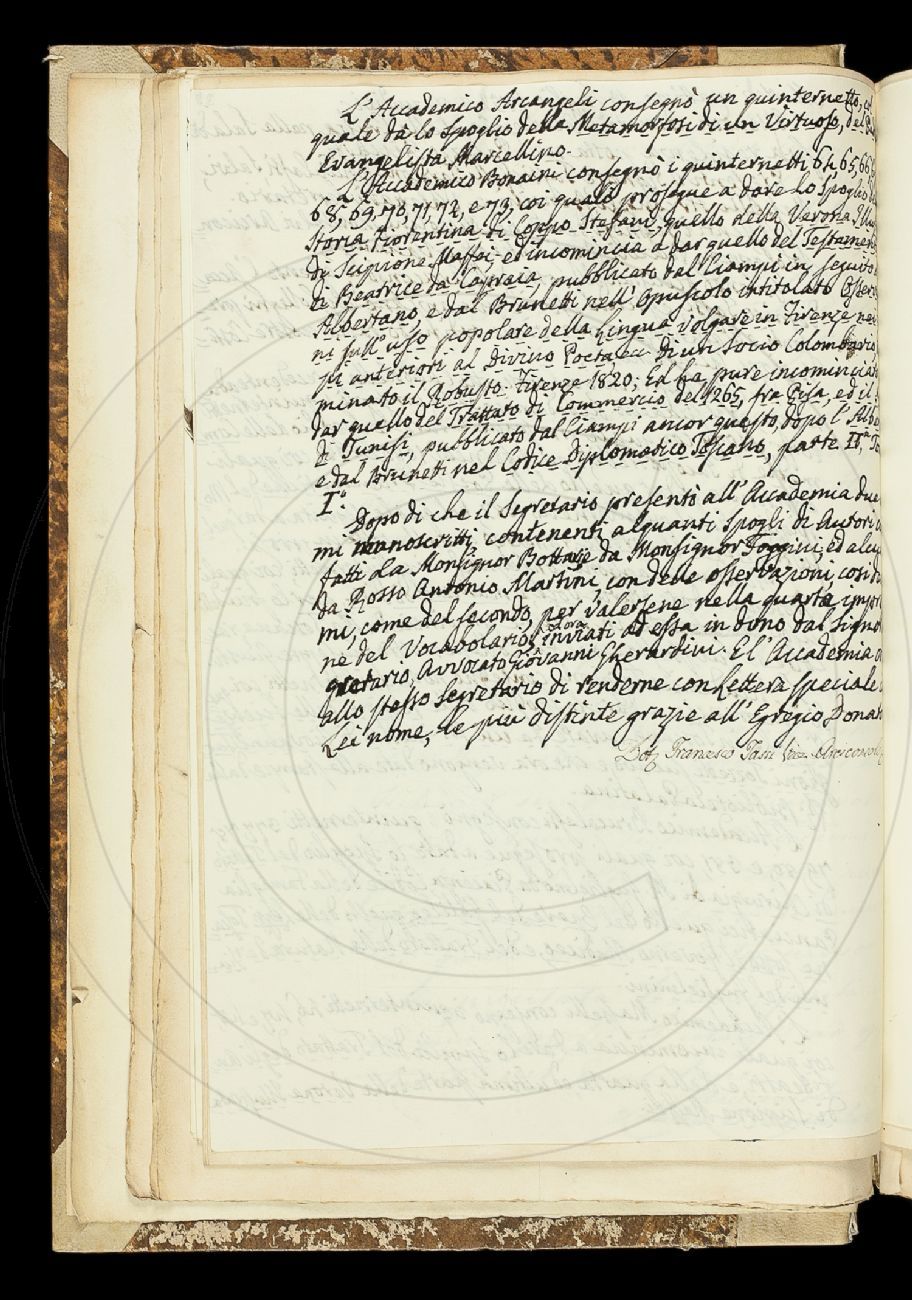 L'Accademico Arcangeli consegnò un quinternetto, col
quale dà lo Spoglio della Metamorfosi di un Virtuoso, del
Evangelista Marcellino.
L'Accademico Bonaini consegnò i quinternetti 64, 65, 66,
68, 69, 70, 71, 72, e 73, coi quali prosegue a dare lo Spoglio
Storia Fiorentina di Coppo Stefani, quello della Verona
di Scipione Maffei; ed incomincia a dar quello del Testamen
di Beatrice da Capraia, pubblicato dal Ciampi in seguito
Albertano, e dal Brunetti nell'Opuscolo intitolato Osserv
ni sull'uso popolare della Lingua Volgare in Firenze nei
anteriori al Divino Poeta ec. di un Socio Colombario,
minato il Robusto. Firenze 1820; Ed ha pure incominciat
dar quello del Trattato di Commercio del 1265, fra Pisa, ed il
di Tunisi, pubblicato dal Ciampi ancor questo, dopo l'Albe
e dal Brunetti nel Codice Diplomatico Toscano, parte IIª, To
Iº.
Dopo di che il Segretario presentò all'Accademia due
mi manoscritti contenenti alquanti Spogli di Autori
fatti da Monsignor Bottari e da Monsignor Foggini, ed alcu
da Rosso Antonio Martini, con delle osservazioni, così d
mi, come del secondo, per valersene nella quarta impr
ne del Vocabolario, inviati ad essa in dono dal Signo
gretario Avvocato Giovanni Gherardini. E l'Accademia
allo stesso Segretario di renderne con Lettera speciale
Lei nome, le più distinte grazie all'Egregio Donat
Dott. Francesco Tassi Vice Arciconsolo